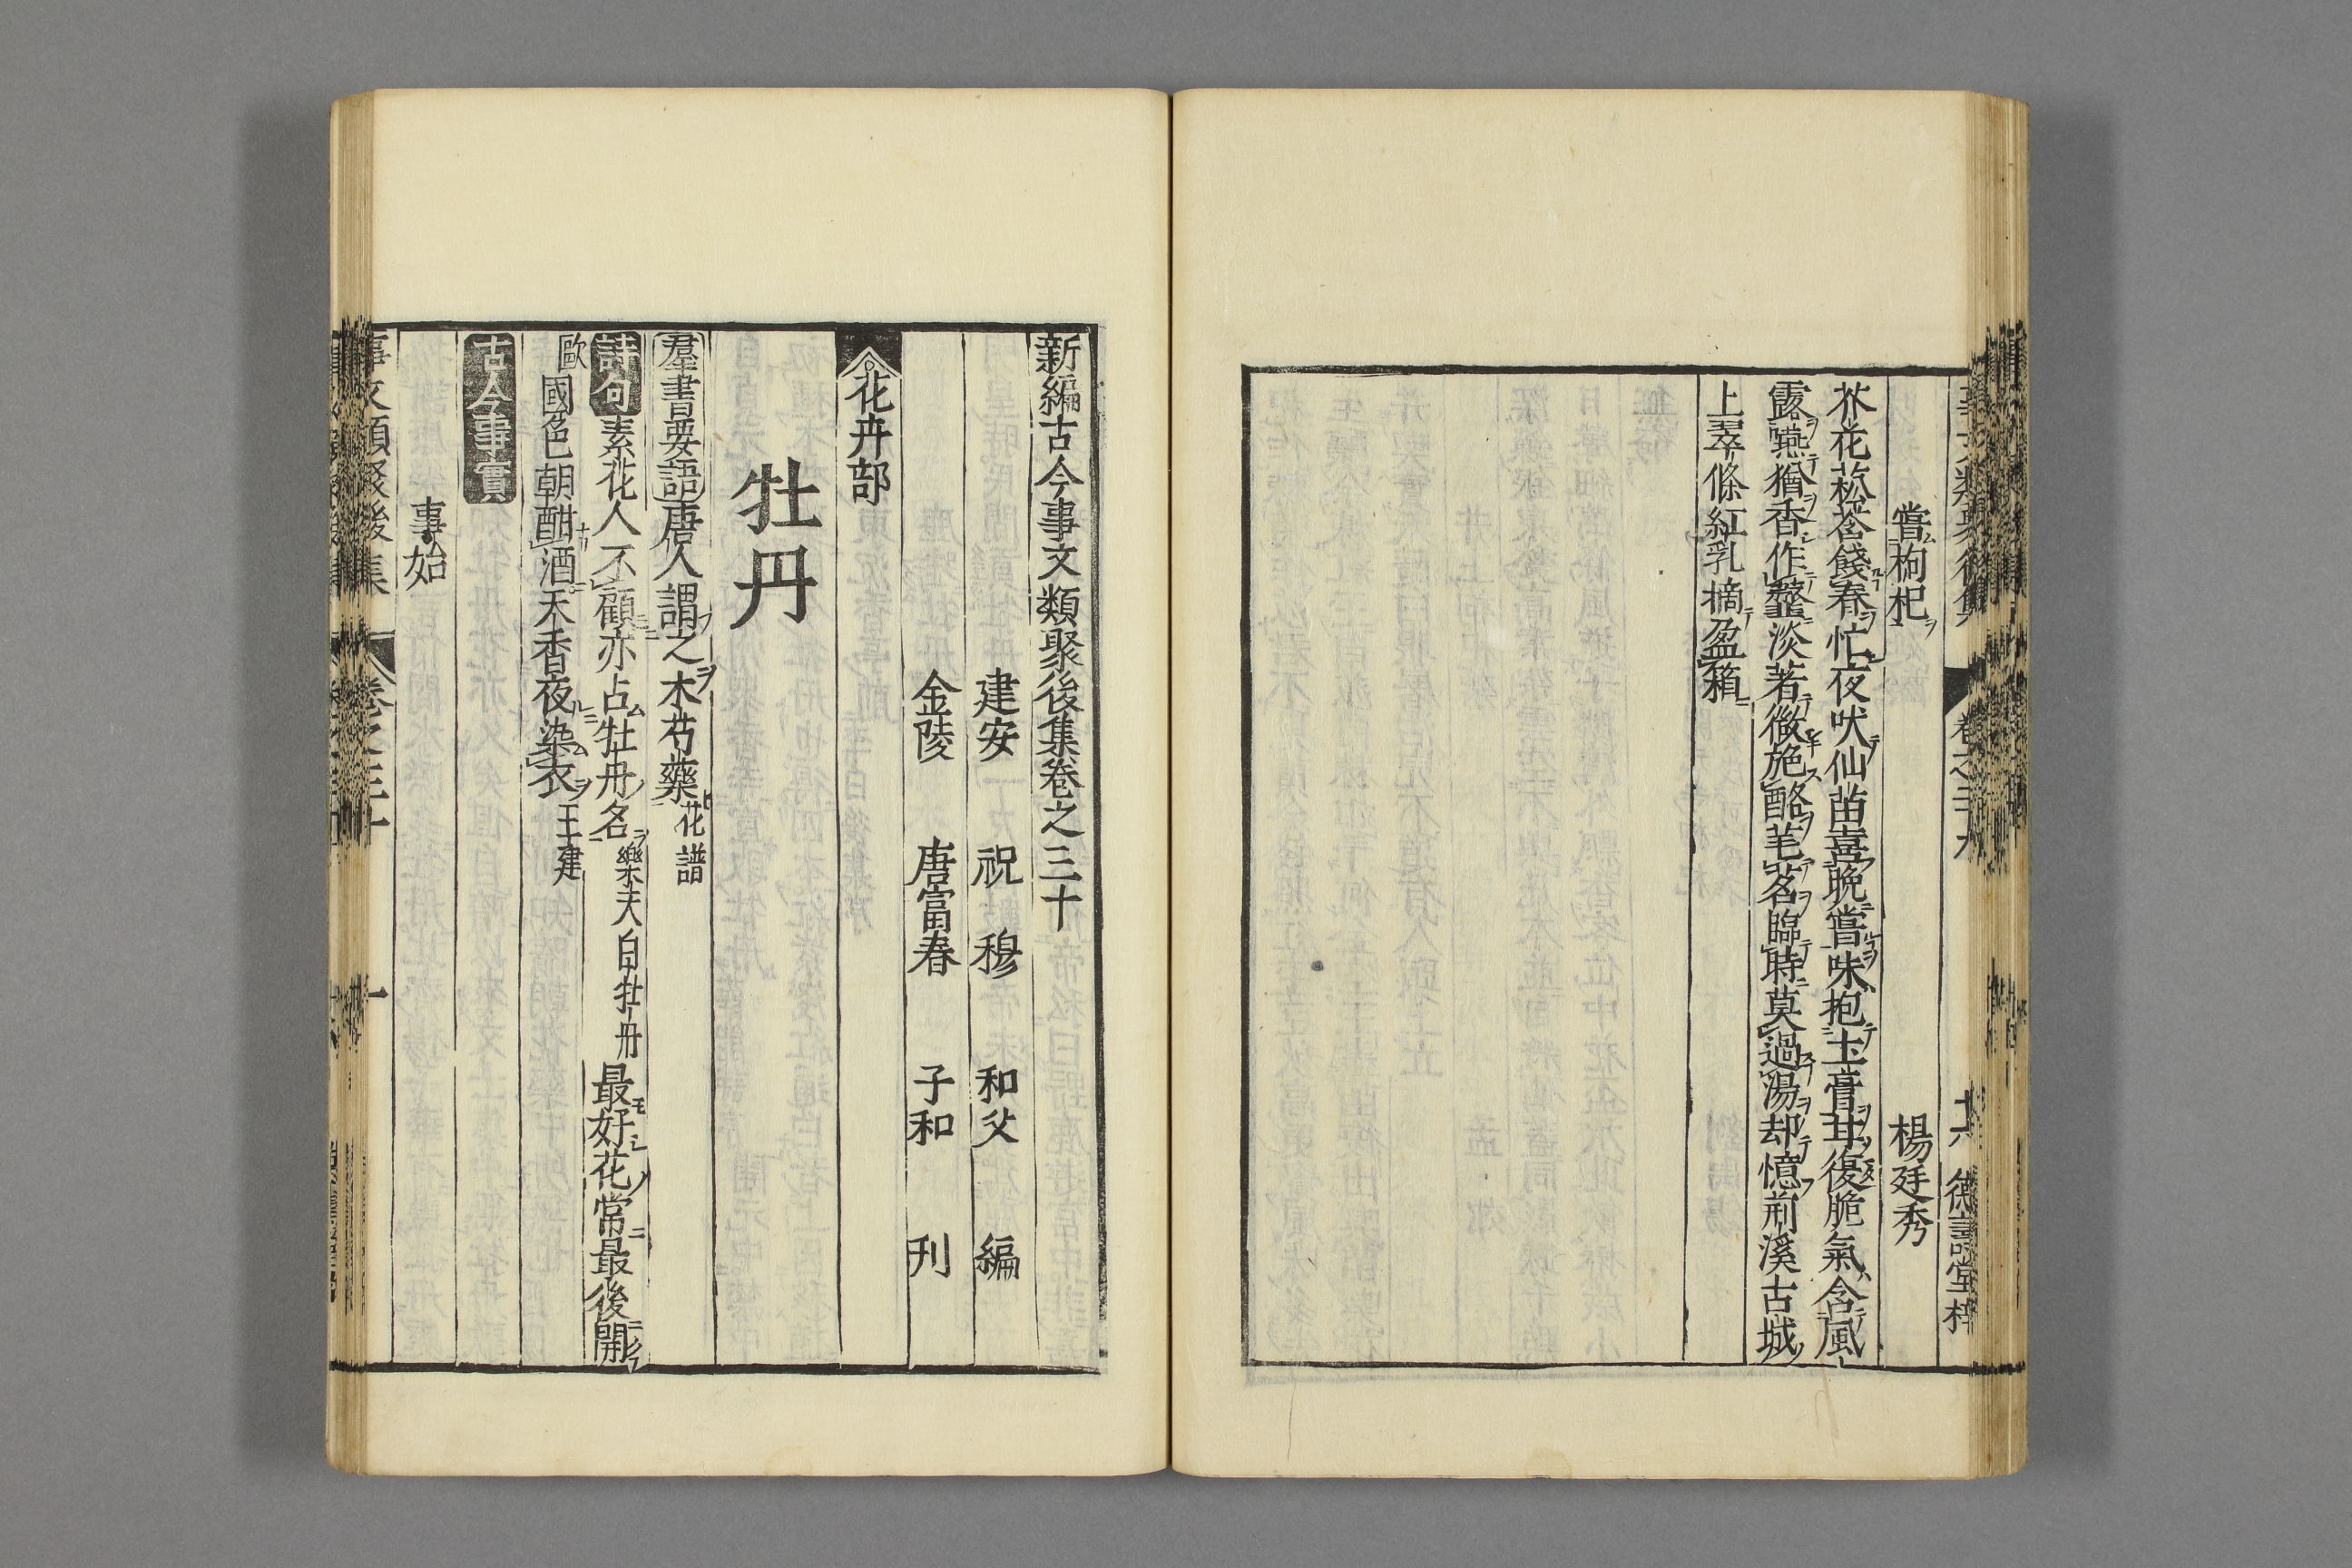 嘗枸杞 楊廷秀
芥花菘荅餞春忙夜吠仙苗喜晩嘗味抱土膏甘復脆氣含風
露嚥猶香作虀淡著微施酪芼茗臨時莫過湯却憶荊溪古城
上翠條紅乳摘盈箱
新編古今事文類聚後集卷之三十
建安 祝 穆 和父 編
金陵 唐富春 子和 刊
花卉部
牡丹
羣書要語唐人謂之木芍藥花譜
詩句素花人不顧亦占牡丹名樂天白牡丹最好花常最後開
歐國色朝酣酒天香夜染衣王建
古今事實
事始